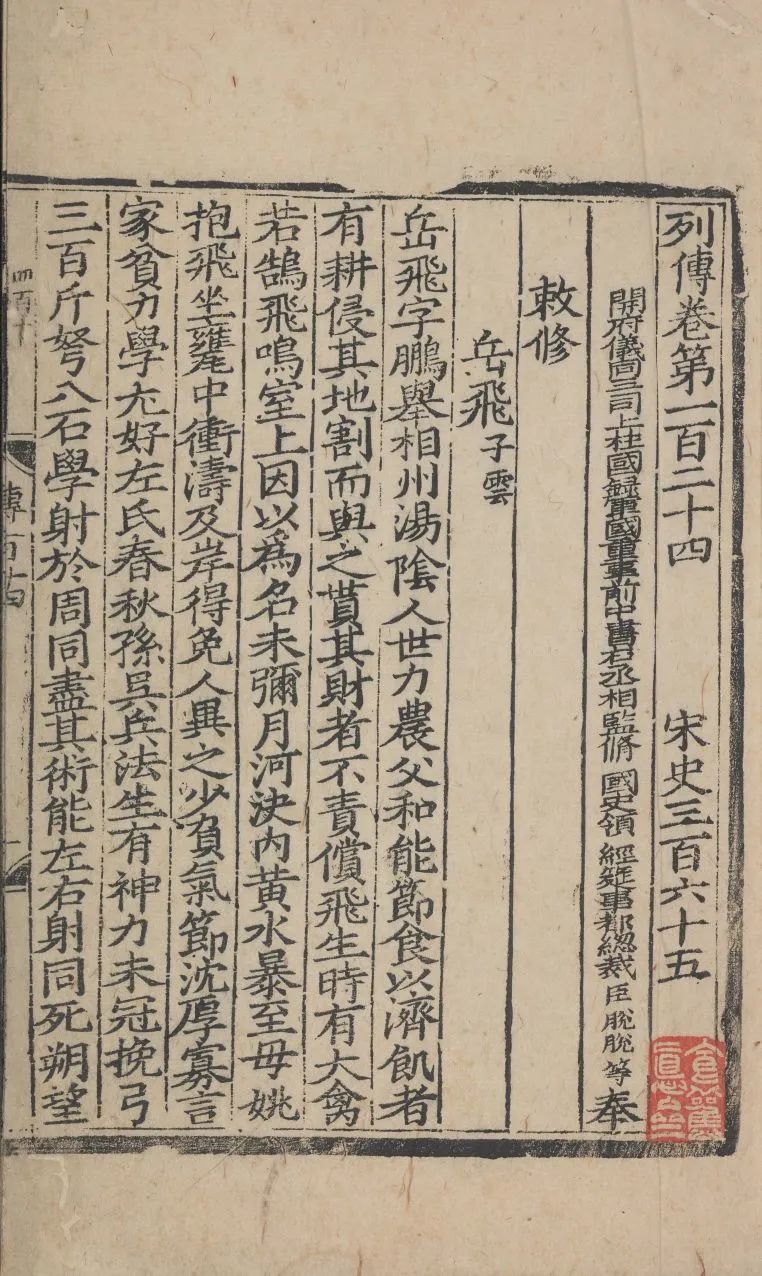 列傳卷第一百二十四 宋史三百六十五
開府儀同三司上柱國錄軍國重事前中書右丞相監脩 國史領 經筵事都緫裁臣脫脫等奉
敕修
岳飛子雲
岳飛字鵬舉相州湯陰人世力農父和能節食以濟飢者
有耕侵其地割而與之貰其財者不責償飛生時有大禽
若鵠飛鳴室上因以爲名未彌月河決內黃水暴至毋姚
抱飛坐甕中衝濤及岸得免人異之少負氣節沈厚寡言
家貧力學尤好左氏春秋孫吳兵法生有神力未冠挽弓
三百斤弩八石學射於周同盡其術能左右射同死朔望